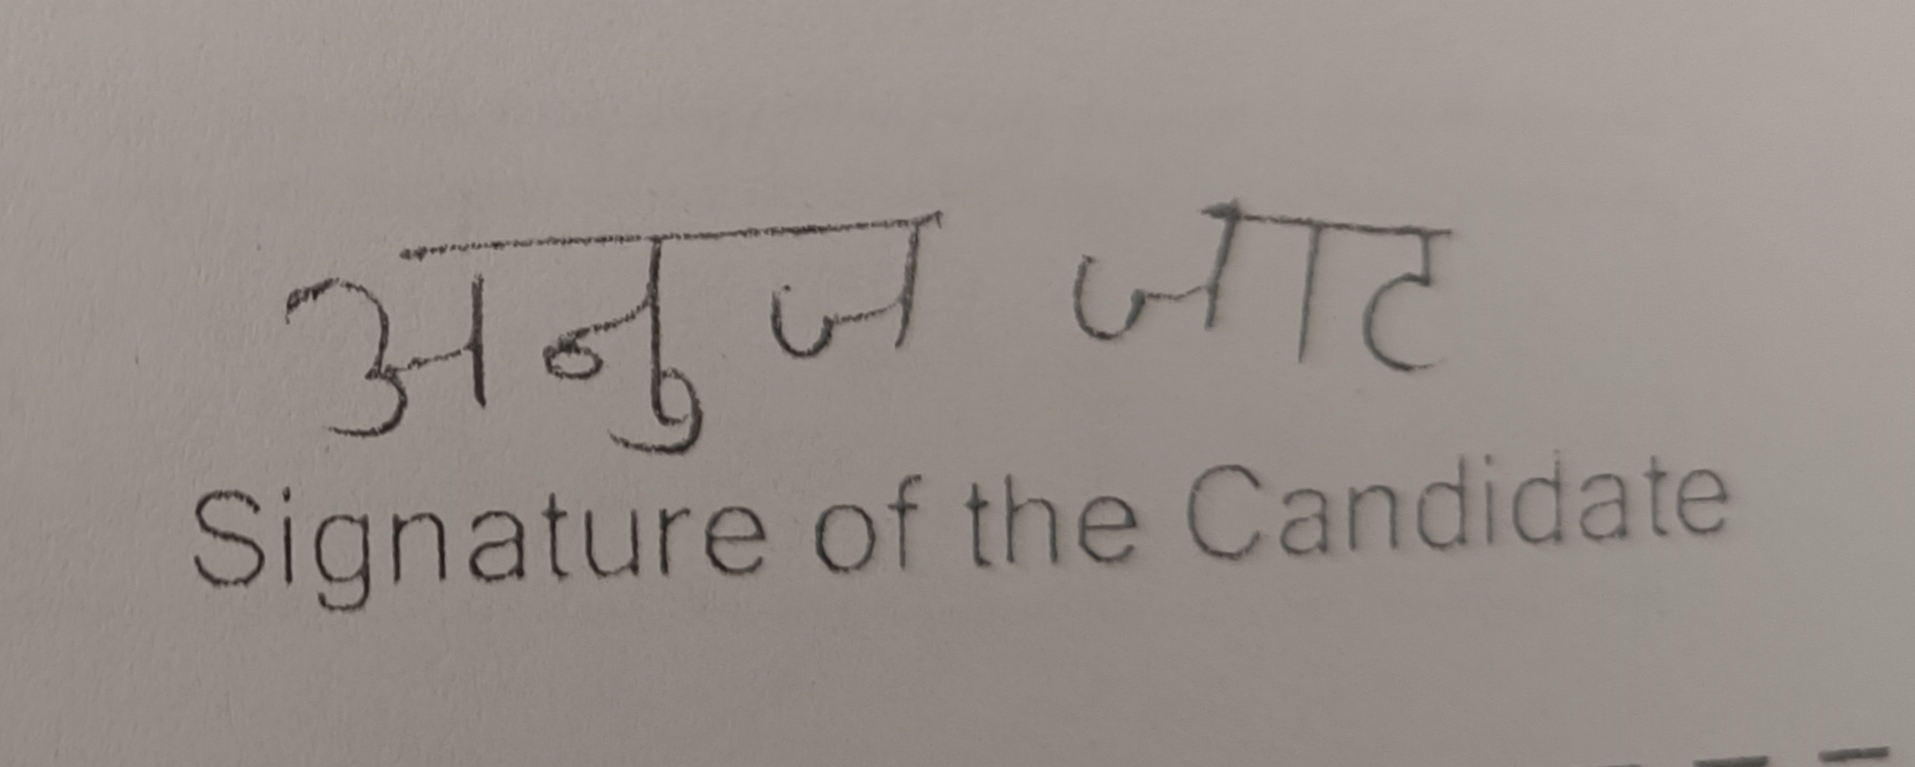 अनुज जाट
Signature of the Candidate